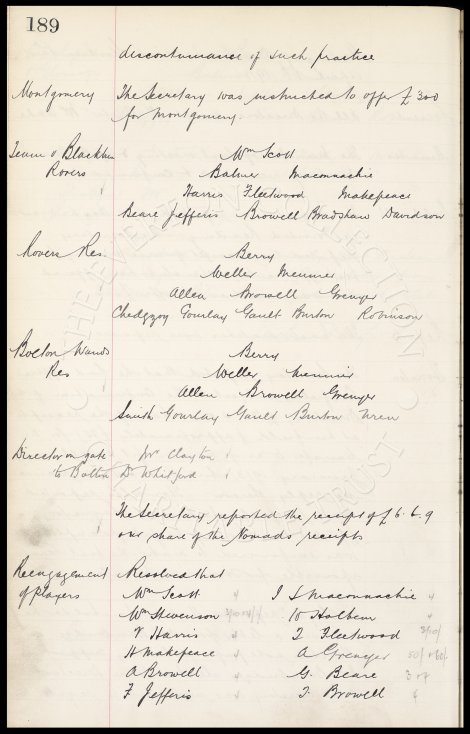 189
discontinuance of such practice
Montgomery The Secretary was instructed to offer £300
for Montgomery.
Team v Blackburn Rovers
Wm Scott
Balmer Maconnachie
Harris Fleetwood Makepeace
Beare Jefferis Browell Bradshaw Davidson
Rovers Res.
Berry
Weller Meunier
Allen Browell Grenyer
Chedgzoy Gourlay Gault Burton Robinson
Bolton Wands Res
Berry
Weller Meunier
Allen Browell Grenyer
Smith Gourlay Gault Burton Wren
Director on gate Mr Clayton
to Bolton Dr Whitford
The Secretary reported the receipt of £6.6.9
our share of the Nomads receipts
Reengagement of players
Resolved that
Wm Scott " J S Maconnachie "
Wm Stevenson W Holbem "
V Harris " T Fleetwood
H Makepeace " A Grenyer
A Browell " G. Beare
F Jefferis " T. Browell
THE EVERTON COLLECTION
CHARITABLE TRUST